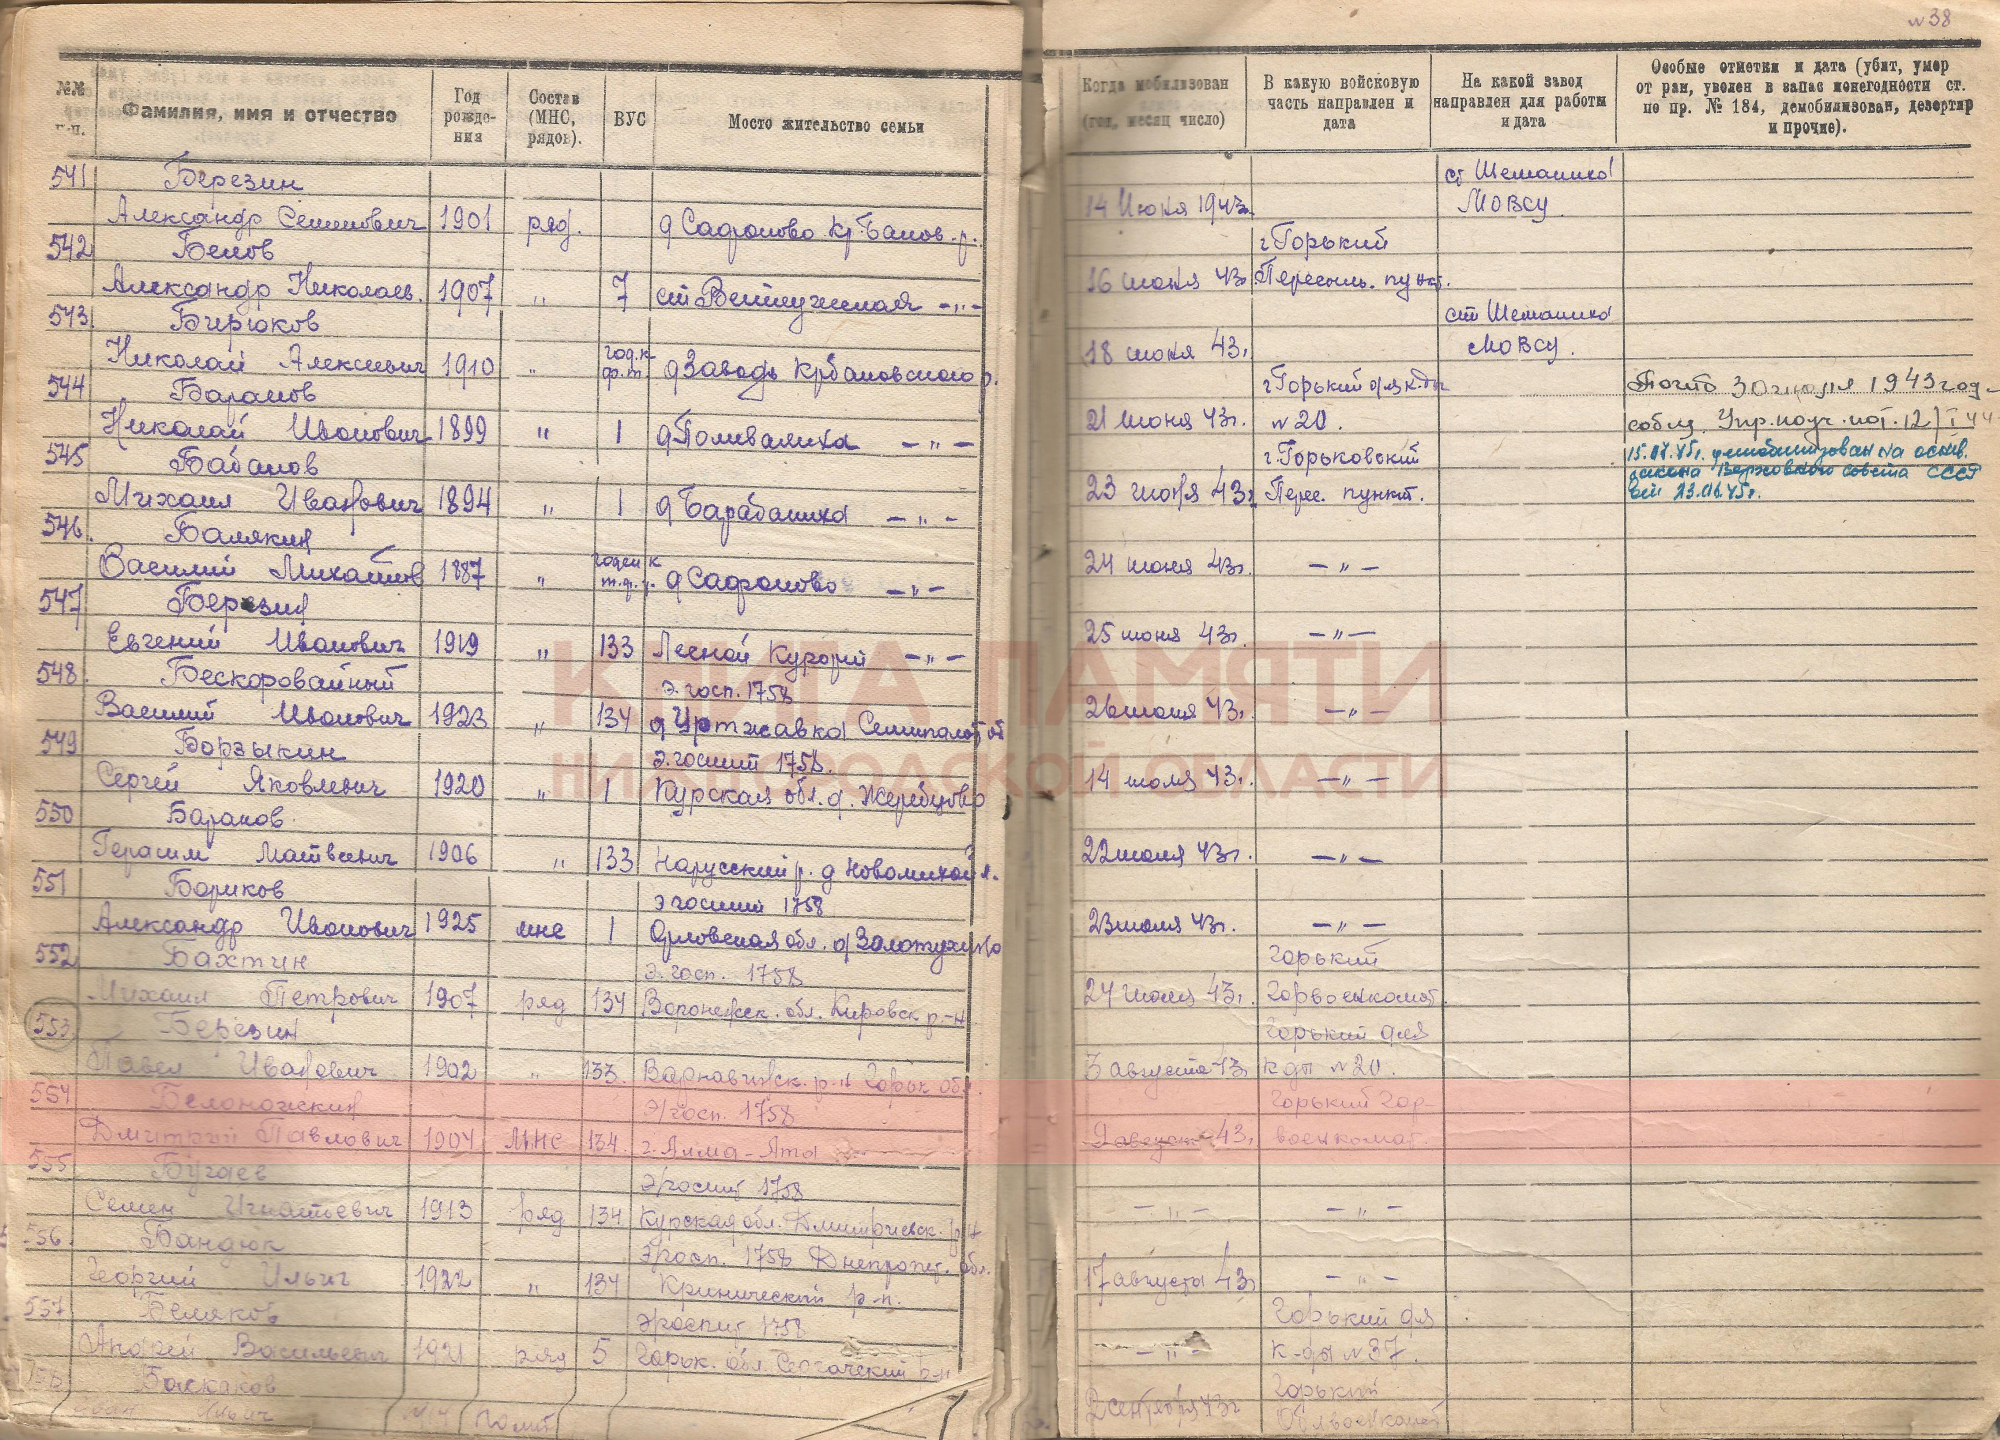 №38
№№ п.п.
Фамилия, имя и отчество
Год рожде-ния
Состав (МНС, рядов).
ВУС
Мосто жительство семьи
Когда мобилизован (год, месяц число)
В какую войсковую часть направлен и дата
На какой завод направлен для работы и дата
Особые отметки и дата (убит, умер от ран, уволен в запас по негодности ст. по пр. № 184, демобилизован, дезертир и прочие).
541 Березин ст Шеманиха
Александр Семенович 1901 ряд. д Сафоново Кр. Баков. р. 14 Июня 1943г. МОВСУ
542 Белов г Горький
Александр Николаев. 1907 „ 7 ст Ветлужская -„- 16 июня 43г. Пересыль. пункт.
543 Бирюков ст Шеманиха
Николай Алексеевич 1910 „ год. к ф.т. д Заводь Крбаковского р. 18 июня 43г. МОВСУ.
544 Баранов г Горький для к-ды Погиб 30 июля 1943 год-
Николай Иванович 1899 „ 1 д Поливаниха -„- 21 июня 43г. №20.
545 Бабанов г. Горьковский 15.07.45г. демобилизован на основ. закона Верховного совета СССР
Михаил Иванович 1894 „ 1 д Барабаниха -„- 23 июня 43г. Перес. пункт. от 23.06.45г.
546 Балякин
Василий Михайлов 1887 „ годен к д Сафоново -„- 24 июня 43г. -„-
547 Березин
Евгений Иванович 1919 „ 133 Лесной Курорт -„- 25 июня 43г. -„-
548 Бескоровайный Э. госп. 1758
Василий Иванович 1923 „ 134 д Уртжавка Семипалат об 26 июня 43г. -„-
549 Борзыкин Э. госпит 1758.
Сергей Яковлевич 1920 „ 1 Курская обл. д. Жеребцово 14 июля 43г. -„-
550 Баранов
Герасим Матвеевич 1906 „ 133 Нарусский р. д 22 июля 43г. -„-
551 Бориков Эгоспит 1758
Александр Иванович 1925 мнс 1 Орловская обл. д Золотухино 23 июля 43г. -„-
552 Бахтин Э. госп. 1758 Горький
Михаил Петрович 1907 ряд 134 Воронежск. обл. Кировск р-н 24 июля 43г. Горвоенкомат
553 Березин Горький для
Павел Иванович 1902 „ 133. Варнавинск. р-н Горьк обл. 3 августа 43г. к-ды №20.
554 Белоножкин Э/госп. 1758 Горький Гор-
Дмитрий Павлович 1904 МНС 134. г. Алма-Ата 9 август 43г. военкомат.
555 Бугаев Э/госпит 1758
Семен Игнатьевич 1913 ряд 134 Курская обл. Дмитриевск. р-н -„- -„-
556 Бандюк Э/госп. 1758 Днепропет. обл.
Георгий Ильич 1922 „ 134 Кринический р-н. 17 августа 43г. -„-
557 Беляков Эгоспит 1758 Горький для
Андрей Васильевич 1921 ряд 5 Горьк. обл. Сергачский р-н -„- к-ды №37.
558 Баскаков Горький
Иван Ильич 2 сентября 43г Облвоенкомат
КНИГА ПАМЯТИ
НИЖЕГОРОДСКОЙ ОБЛАСТИ